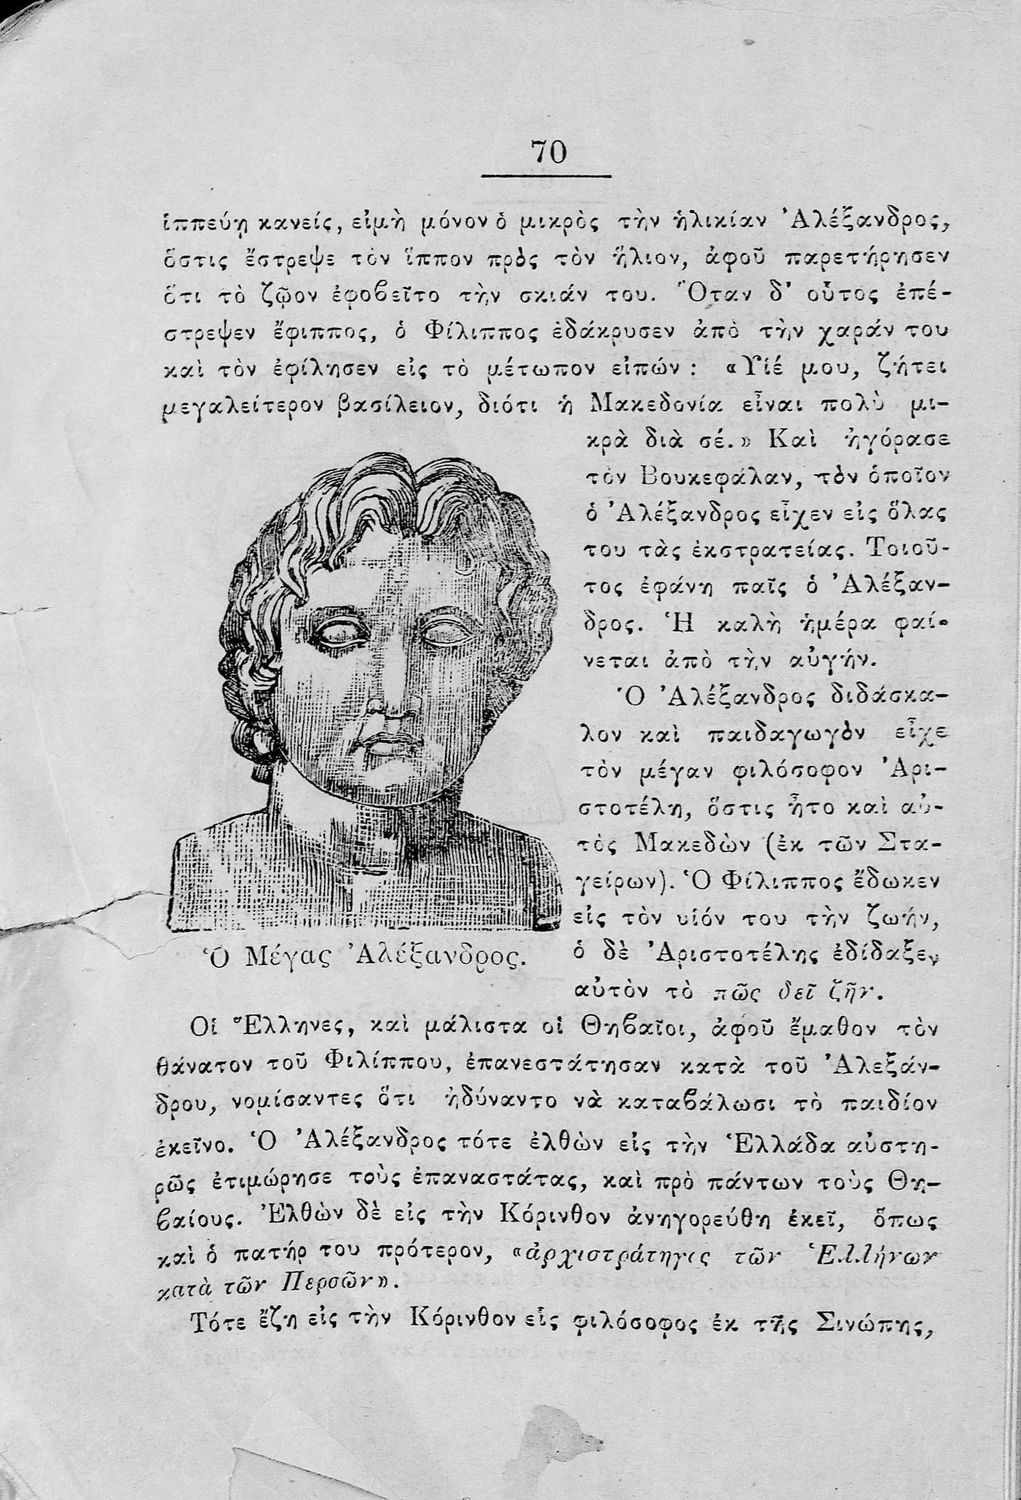 70
ἱππεύῃ κανείς, εἰμὴ μόνον ὁ μικρὸς τὴν ἡλικίαν Ἀλέξανδρος,
ὅστις ἔστρεψε τὸν ἵππον πρὸς τὸν ἥλιον, ἀφοῦ παρετήρησεν
ὅτι τὸ ζῷον ἐφοβεῖτο τὴν σκιάν του. Ὅταν δ' οὗτος ἐπέ-
στρεψεν ἔφιππος, ὁ Φίλιππος ἐδάκρυσεν ἀπὸ τὴν χαράν του
καὶ τὸν ἐφίλησεν εἰς τὸ μέτωπον εἰπών : «Υἱέ μου, ζήτει
μεγαλείτερον βασίλειον, διότι ἡ Μακεδονία εἶναι πολὺ μι-
κρὰ διὰ σέ.» Καὶ ἠγόρασε
τὸν Βουκεφάλαν, τὸν ὁποῖον
ὁ Ἀλέξανδρος εἶχεν εἰς ὅλας
του τὰς ἐκστρατείας. Τοιοῦ-
τος ἐφάνη παῖς ὁ Ἀλέξαν-
δρος. Ἡ καλὴ ἡμέρα φαί-
νεται ἀπὸ τὴν αὐγήν.
Ὁ Ἀλέξανδρος διδάσκα-
λον καὶ παιδαγωγὸν εἶχε
τὸν μέγαν φιλόσοφον Ἀρι-
στοτέλη, ὅστις ἦτο καὶ αὐ-
τὸς Μακεδὼν (ἐκ τῶν Στα-
γείρων). Ὁ Φίλιππος ἔδωκεν
εἰς τὸν υἱόν του τὴν ζωήν,
ὁ δὲ Ἀριστοτέλης ἐδίδαξεν
αὐτὸν τὸ πῶς δεῖ ζῆν.
Ὁ Μέγας Ἀλέξανδρος.
Οἱ Ἕλληνες, καὶ μάλιστα οἱ Θηβαῖοι, ἀφοῦ ἔμαθον τὸν
θάνατον τοῦ Φιλίππου, ἐπανεστάτησαν κατὰ τοῦ Ἀλεξάν-
δρου, νομίσαντες ὅτι ἠδύναντο νὰ καταβάλωσι τὸ παιδίον
ἐκεῖνο. Ὁ Ἀλέξανδρος τότε ἐλθὼν εἰς τὴν Ἑλλάδα αὐστη-
ρῶς ἐτιμώρησε τοὺς ἐπαναστάτας, καὶ πρὸ πάντων τοὺς Θη-
βαίους. Ἐλθὼν δὲ εἰς τὴν Κόρινθον ἀνηγορεύθη ἐκεῖ, ὅπως
καὶ ὁ πατήρ του πρότερον, «ἀρχιστράτηγος τῶν Ἑλλήνων
κατὰ τῶν Περσῶν».
Τότε ἔζη εἰς τὴν Κόρινθον εἷς φιλόσοφος ἐκ τῆς Σινώπης,